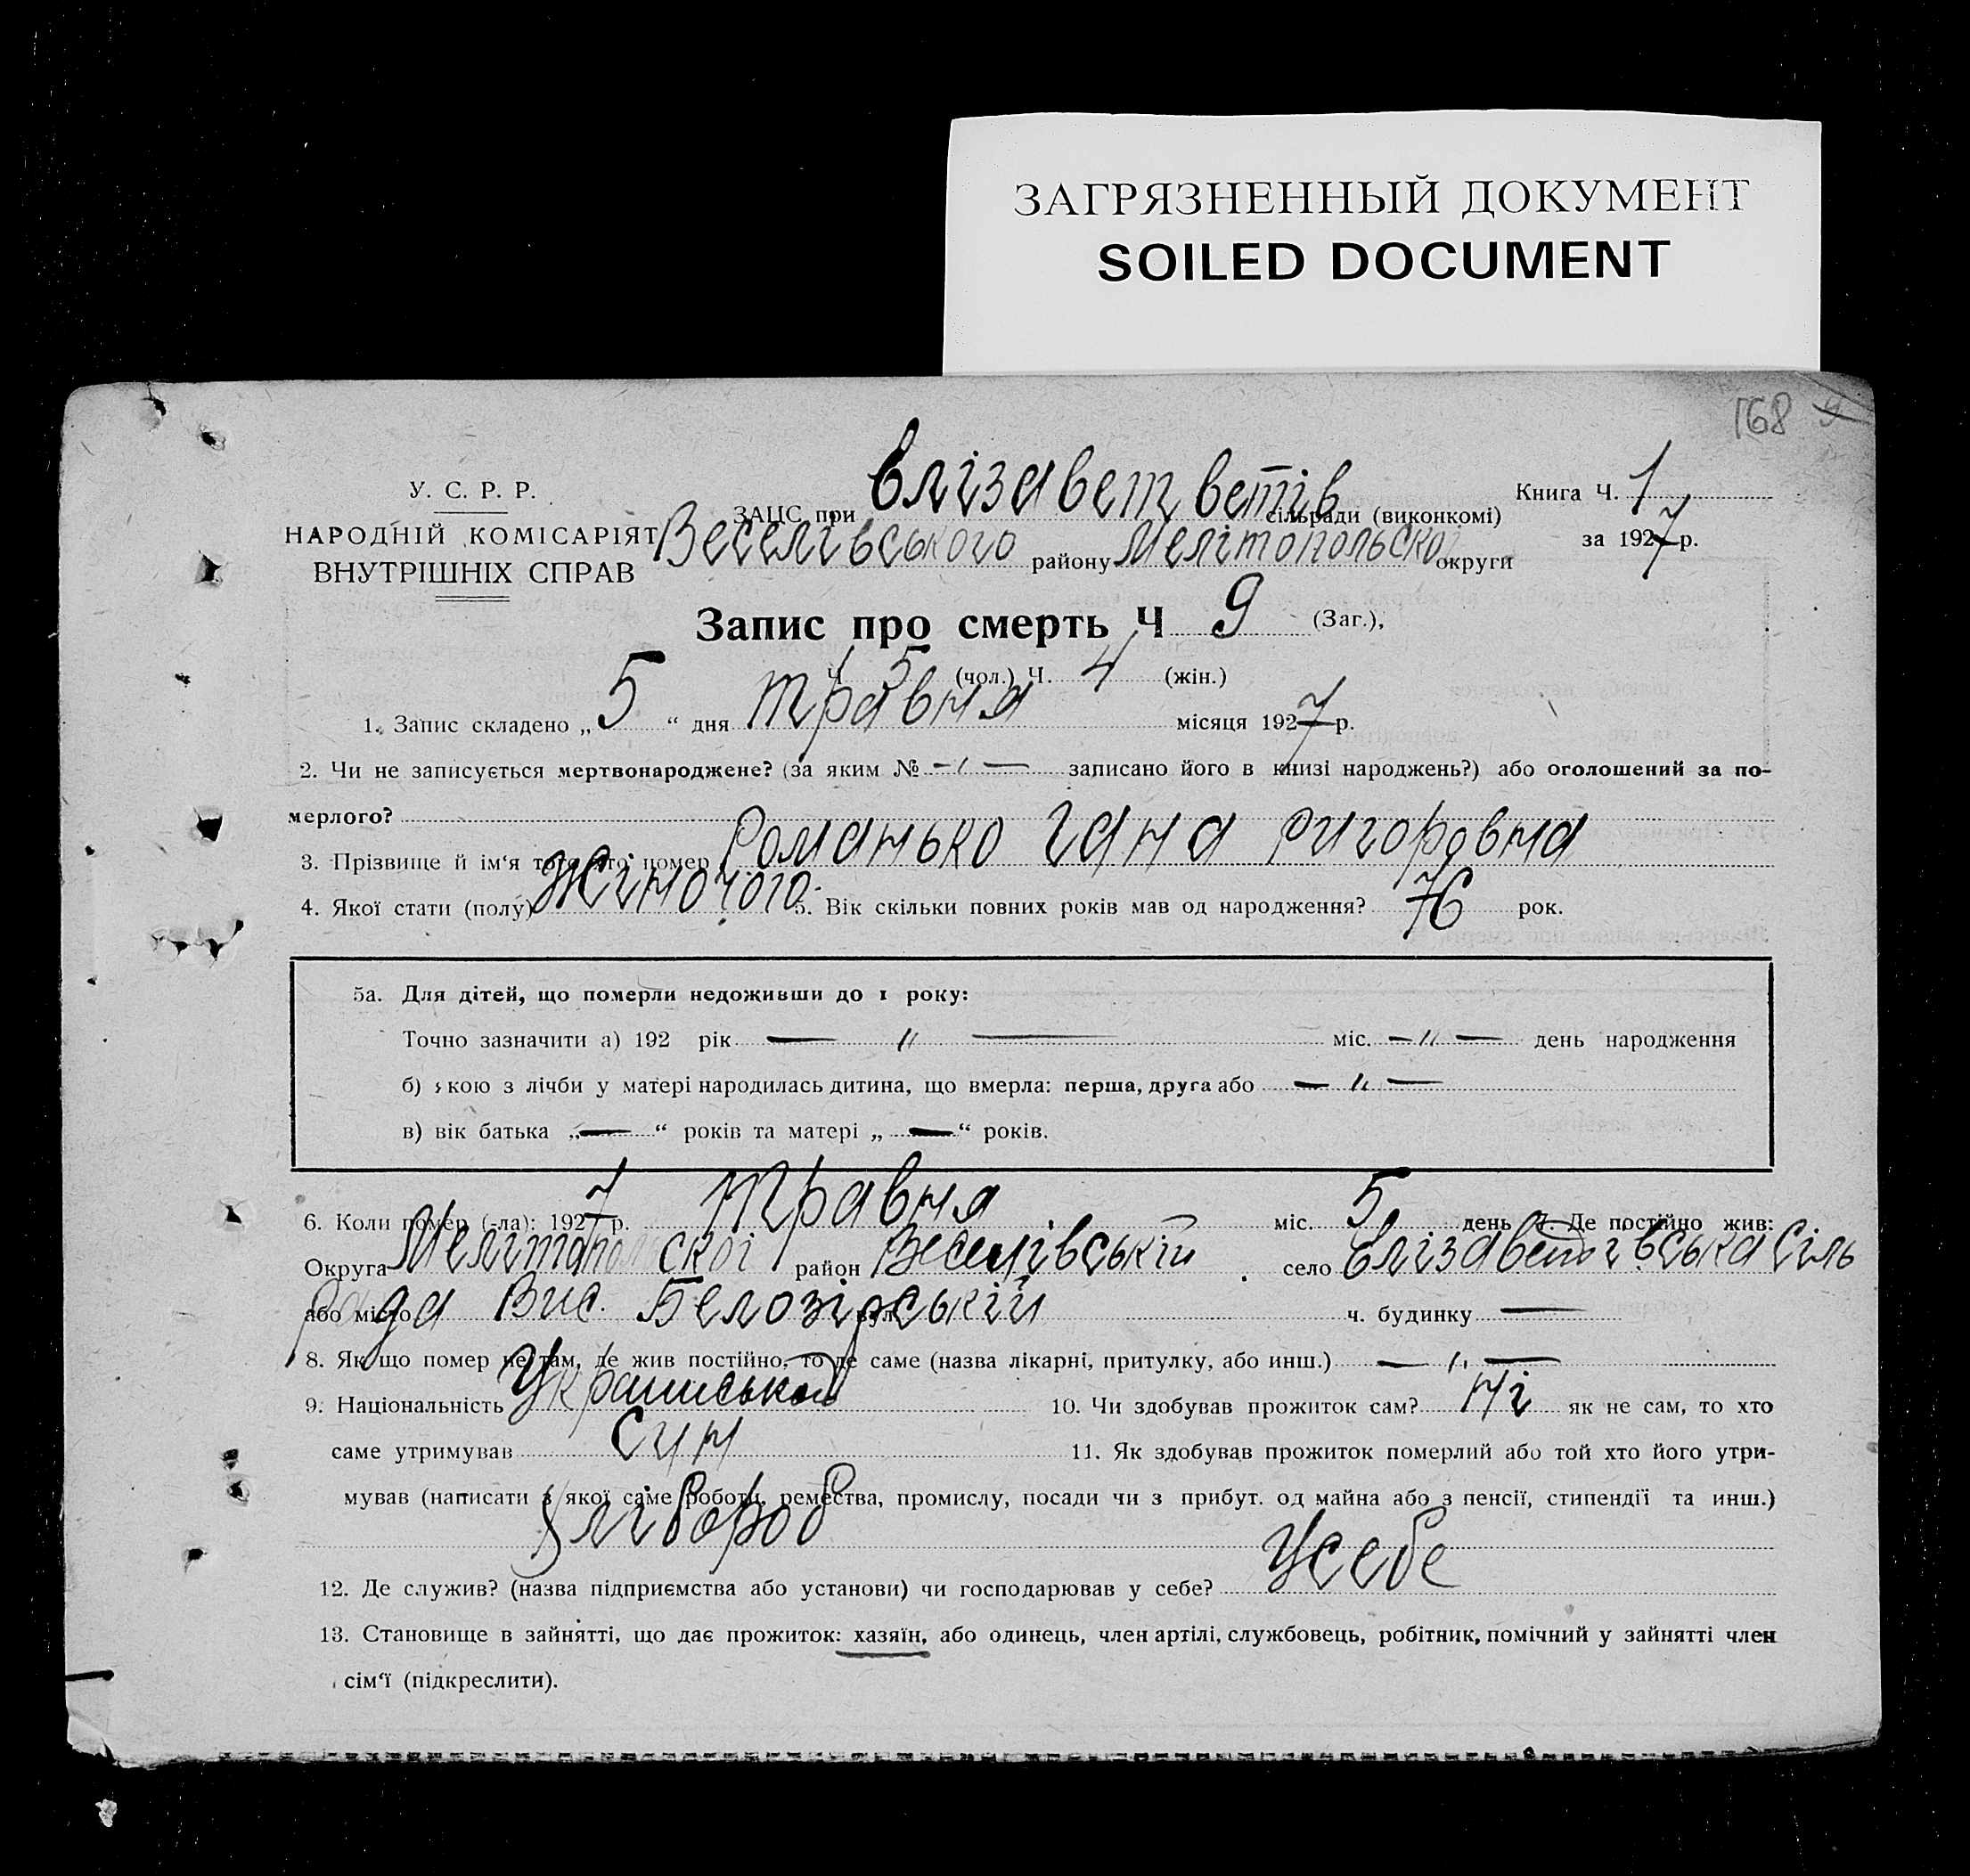 ЗАГРЯЗНЕННЫЙ ДОКУМЕНТ
SOILED DOCUMENT
168
У. С. Р. Р.
НАРОДНІЙ КОМІСАРІЯТ
ВНУТРІШНІХ СПРАВ
ЗАЦС при Єлізаветветів сільради (виконкомі)
Веселівського району Мелітопольскої округи
Книга Ч. 1
за 1927 р.
Запис про смерть Ч 9 (Заг.),
Ч 5 (чол.) Ч. 4 (жін.)
1. Запис складено „ 5 “ дня травня місяця 1927 р.
2. Чи не записується мертвонароджене? (за яким № — " — записано його в книзі народжень?) або оголошений за по-
мерлого?
3. Прізвище й ім'я того хто помер Романько Гана Ригоровна
4. Якої стати (полу) Жіночого. 5. Вік скільки повних років мав од народження? 76 рок.
5а. Для дітей, що померли недоживши до 1 року:
Точно зазначити а) 192 рік — " — міс. — " — день народження
б) якою з лічби у матері народилась дитина, що вмерла: перша, друга або — " —
в) вік батька „ — “ років та матері „ — “ років.
6. Коли помер (-ла): 1927 р. Травня міс. 5 день 7. Де постійно жив:
Округа Мелітопольскої район Веселівській село Єлізаветівська Сіль
або місто рада Вис. Белозірській вул. ч. будинку —
8. Як що помер не там, де жив постійно, то де саме (назва лікарні, притулку, або инш.) — " —
9. Національність 10. Чи здобував прожиток сам? Ні як не сам, то хто
саме утримував Син 11. Як здобував прожиток померлий або той хто його утри-
мував (написати з якої саме роботи, ремества, промислу, посади чи з прибут. од майна або з пенсії, стипендії та инш.)
Хлібороб
12. Де служив? (назва підприємства або установи) чи господарював у себе? Усебе
13. Становище в зайнятті, що дає прожиток: хазяїн, або одинець, член артілі, службовець, робітник, помічний у зайнятті член
сім'ї (підкреслити).